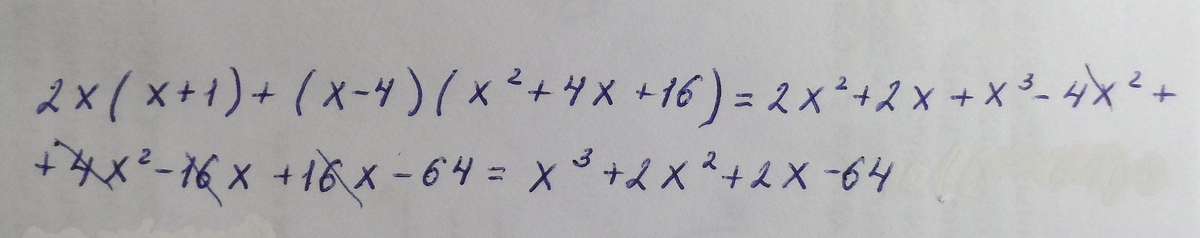 2x(x+1)+(x-4)(x²+4x+16)=2x²+2x+x³-4x²+
+4x²-16x+16x-64=x³+2x²+2x-64